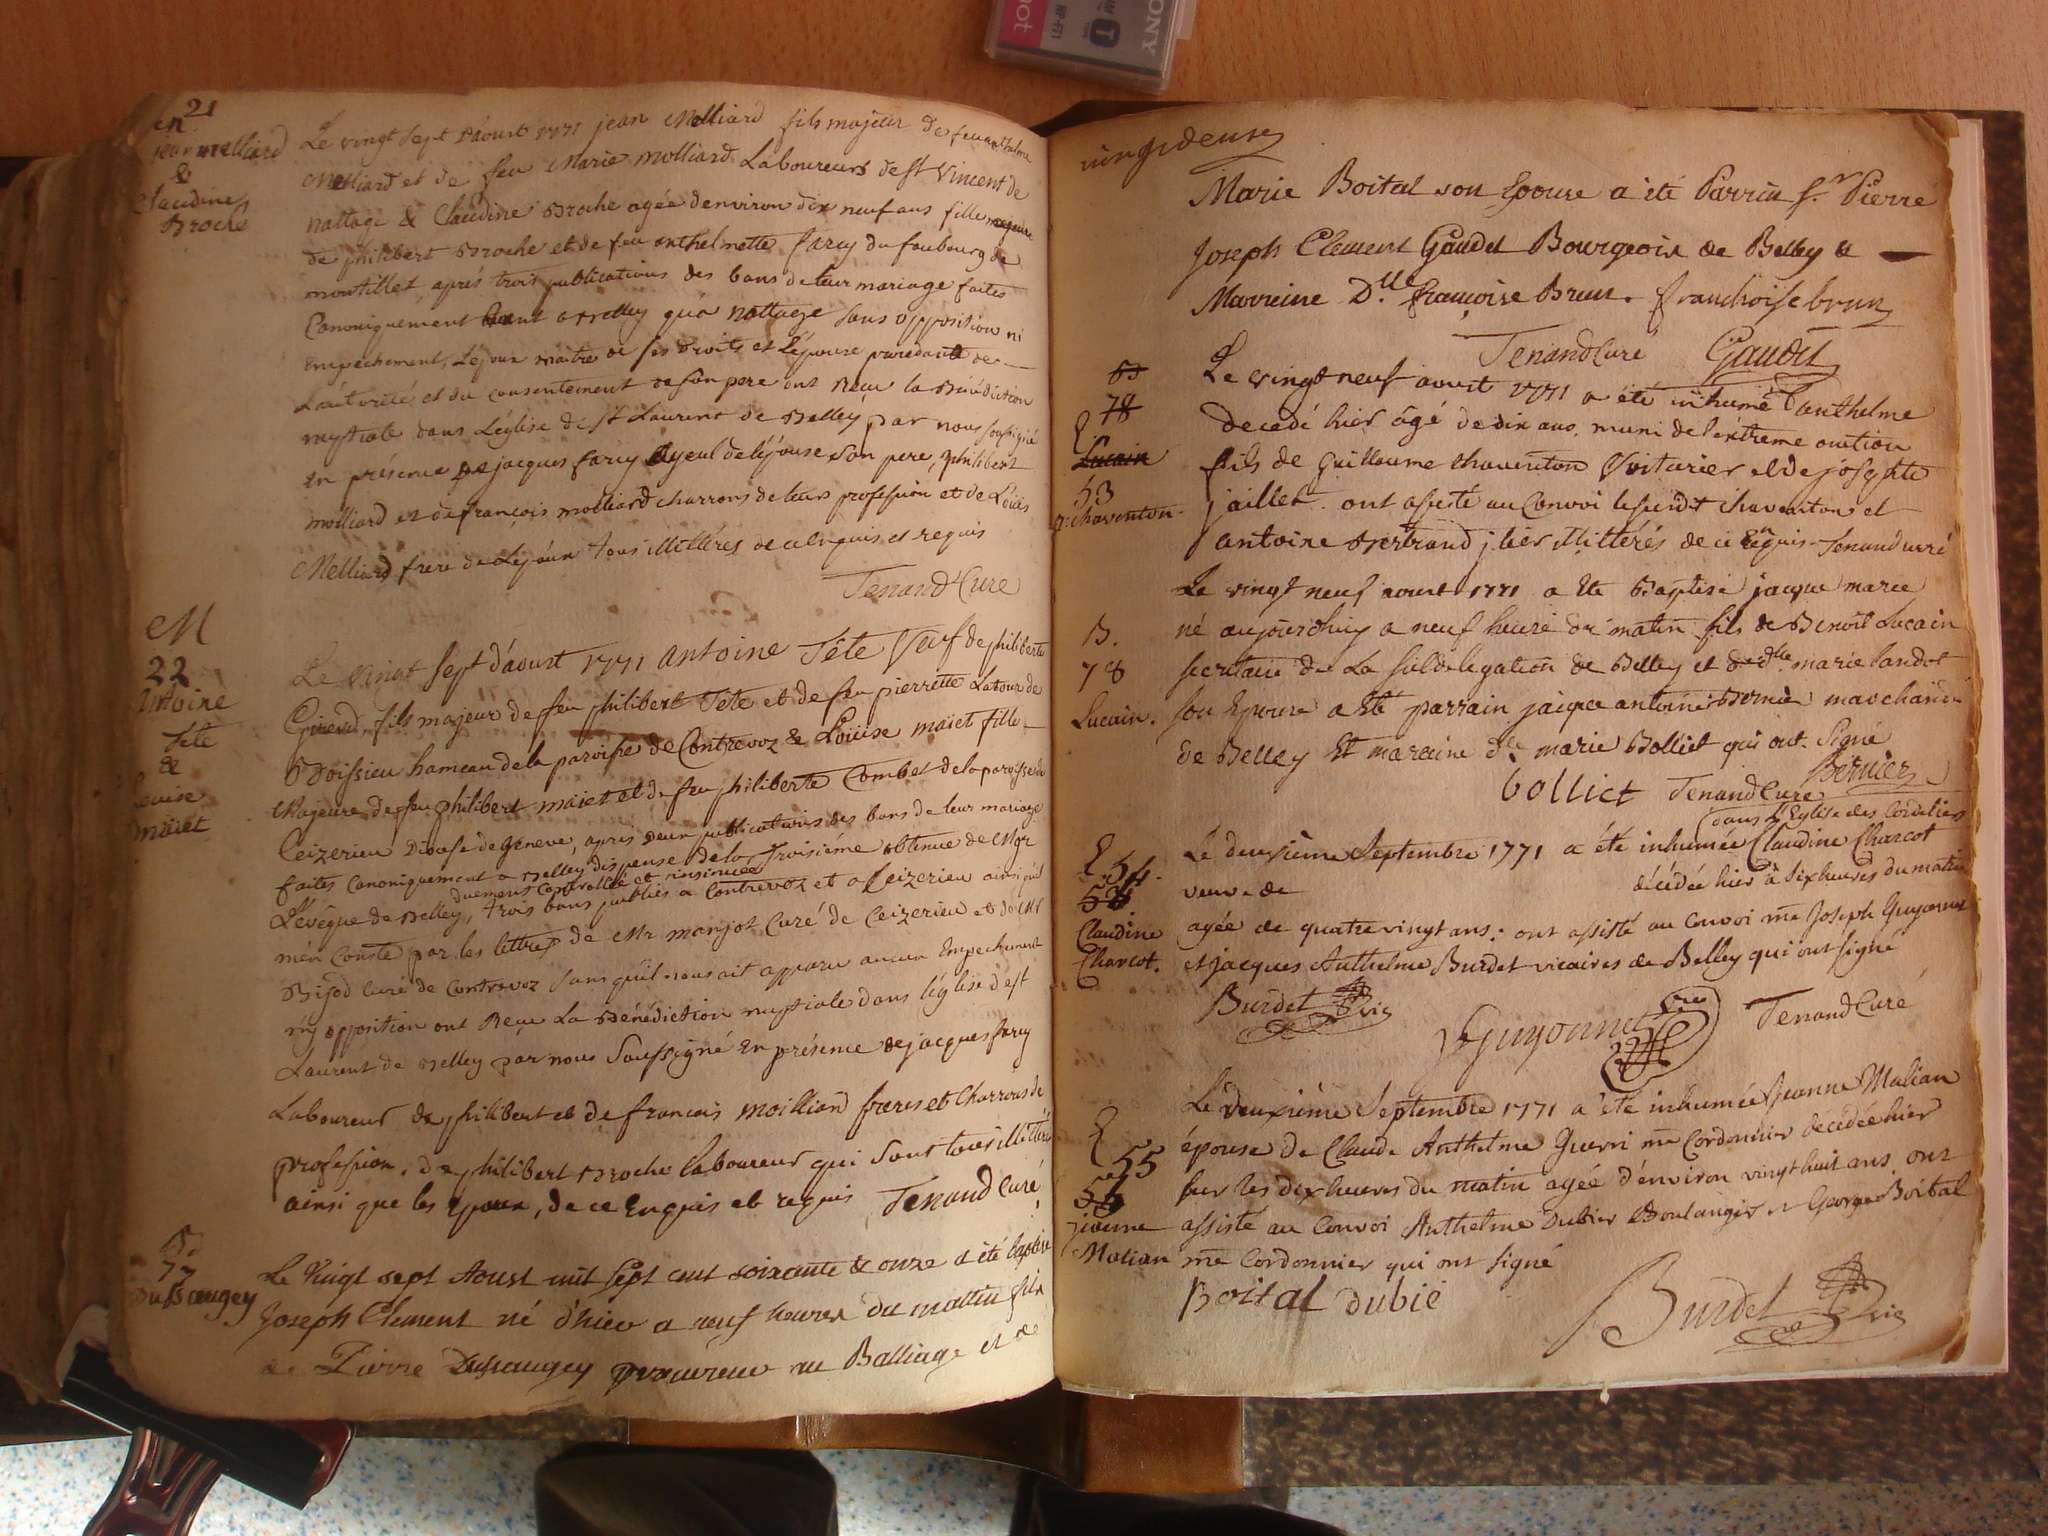 SONY
m 21
jean melliard
&
Claudine
Broche
Le vingt sept d'aoust 1771 jean Molliard fils majeur de feu anthelme
Molliard et de feu Marie molliard Laboureurs de st Vincent de
nattage & Claudine Broche agée d'environ dix neuf ans fille
de philibert Broche et de feu anthelmette farcy du faubourg de
montillet, aprés trois publications des bans de leur mariage faites
Canoniquement tant a Belley qu'a Nattage sans opposition ni
empechement, L'époux maitre de ses droits et L'épouse procedante de
L'autorité et du consentement de son pere ont Reçu la Bénédiction
nuptiale dans L'église de st Laurent de Belley par nous soussigné
en présence de jacques farcy ayeul de l'épouse son pere, philibert
molliard et de françois molliard charrons de leurs profession et de Louis
Melliard frere de L'époux tous illittérés de ce enquis et requis
Tenand Curé
M
22
antoine
Tête
&
Louise
maiet
Le vingt sept d'aoust 1771 antoine Tête Veuf de philiberte
Girerd, fils majeur de feu philibert Tête et de feu pierrette Latour de
Boissieu hameau de la paroisse de Contrevoz & Louise maiet fille
Majeure de feu philibert maiet et de feu philiberte Combet de la paroisse de
Ceizerieu Diocese de Geneve, apres deux publications des bans de leur mariage
faites canoniquement a Belley dispense de la troisieme obtenue de Mgr
duement controllée et insinuée
L'évêque de Belley, trois bans publiés a Contrevoz et a Ceizerieu ainsi qu'il
m'en Conste par les lettres de Mr monjot Curé de Ceizerieu et de Mr
Bijod Curé de Contrevoz sans qu'il nous ait apparu aucun Empechement
ny opposition ont Reçu La Bénédiction nuptiale dans l'église de st
Laurent de Belley par nous soussigné En présence de jacques farcy
Laboureur de philibert et de francois moilliard freres et Charrons de
profession, de philibert Broche laboureur qui sont tous illittérés
ainsi que les Epoux, de ce Enquis et requis Tenand Curé
B.
77
Dusaugey
Le Vingt sept Aoust mil sept cent soixante & onze a été baptisé
Joseph Clement né d'hier a neuf heures du mattin fils
de Pierre Dusaugey procureur au Balliage et de
vingt deux
Marie Boital son Epouse a été Parrin sr. Pierre
Joseph Clement Gaudet Bourgeois de Belley &
Marreine D.lle françoise Brun. franchoise brun
Tenand Curé Gaudet
78
E
Lucain
53
chaventon
Le vingt neuf aoust 1771 a été inhumé anthelme
decedé hier âgé de dix ans, muni de l'extreme onction
fils de Guillaume chaventon Voiturier et de josephte
jaillet. ont assisté au Convoi lesusdit chaventon et
antoine Bertrand illittérés de ce Enquis. Tenand curé
B.
78
Lucain.
Le vingt neuf aoust 1771 a Eté Baptisé jacque marie
né aujourdhuy a neuf heure du matin fils de Benoit Lucain
secretaire de La subdelegation de Belley et de dlle marie landot
son Epouse a Eté parrain jacque antoine Bernier marchand
de Belley Et maraine dle marie Bolliet qui ont Signé
bolliet Tenand Curé Bernier
E. 54.
53
Claudine
Charcot.
dans l'Eglise des Cordeliers
Le deuxième Septembre 1771 a été inhumée Claudine Charcot
veuve de décédée hier à six heures du matin
agée de quatre vingt ans; ont assisté au Convoi mre Joseph Guyonnet
et jacques Anthelme Burdet vicaires de Belley qui ont signé
Burdet vic Guyonnet vic Tenand Curé
E
55
54
jeanne
Malian
Le deuxième Septembre 1771 a été inhumée Jeanne Malian
épouse de Claude Anthelme Guerri me Cordonnier décédée hier
sur les dix heures du matin agée d'environ vingt huit ans, ont
assisté au Convoi Anthelme Dubier Boulanger et George Boital
me Cordonnier qui ont signé
Boital dubié Burdet vic